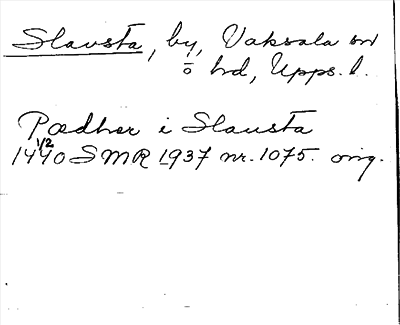 Slavsta, by, Vaksala sn
ö hd, Upps. l.
Pædher i Slausta
1440 1/2 SMR 1937 nr. 1075. orig.